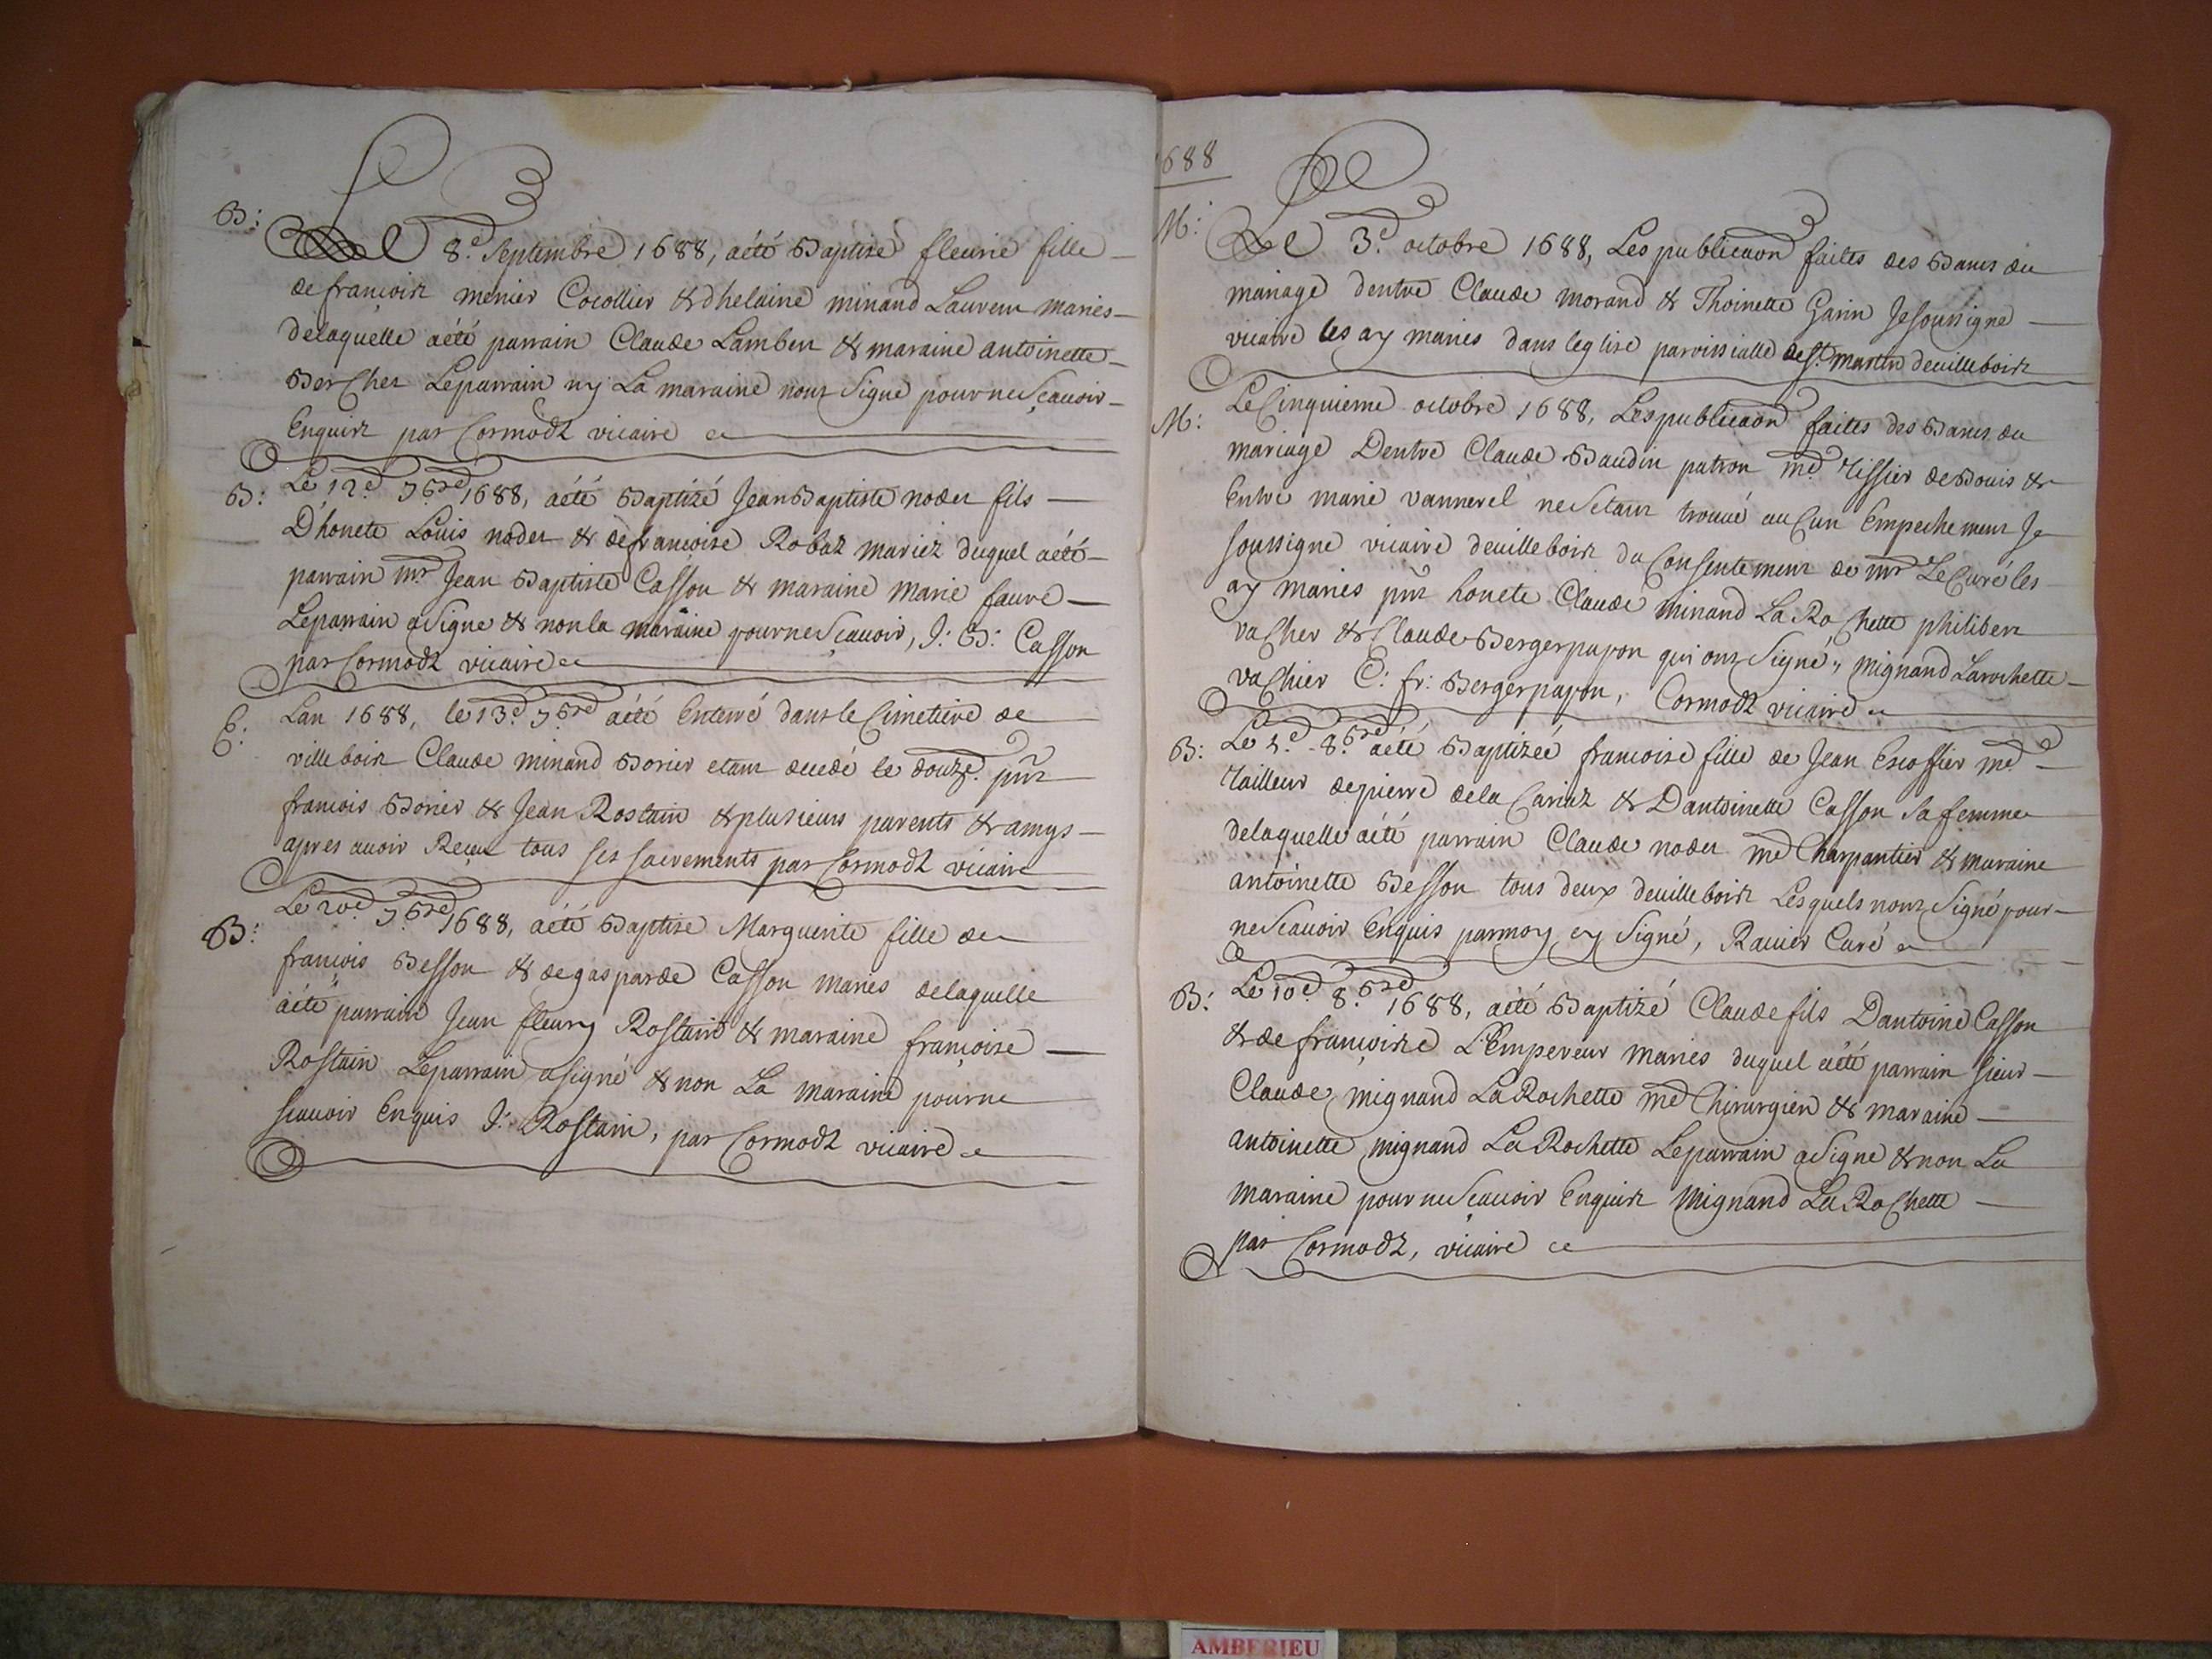 B:
Le 8.e Septembre 1688, aété Baptisé fleurie fille
de francoise menier Cocollier & dhelaine minand Laurent maries
delaquelle aété parrain Claude Lambert & maraine antoinette
Berchet Leparrain ny La maraine nont Signe pour ne Scauoir
Enquis par Cormodz vicaire
B: Le 12.e 7.bre 1688, aété Baptizé Jean Baptiste nodet fils
D'honete Louis nodet & de francoise Robat mariez duquel aété
parrain mr Jean Baptiste Casson & maraine Marie faure
Leparrain a Signe & non la maraine pour ne Scauoir, J: B: Casson
par Cormodz vicaire
E: Lan 1688, le 13.e 7.bre aété Enterré dans le Cimetiere de
villebois Claude minand Borier etant decedé le douze. pnt
francois Borier & Jean Rostain & plusieurs parents & amys
apres auoir Receu tous ses sacrements par Cormodz vicaire
B: Le 20.e 7.bre 1688, aété Baptise Marguerite fille de
francois Besson & de gasparde Casson maries delaquelle
aété parrain Jean fleury Rostaint & maraine francoise
Rostain Leparrain a signé & non La maraine pour ne
scauoir Enquis J: Rostain, par Cormodz vicaire
1688
M: Le 3.e octobre 1688, Les publicaon faites des Bancs du
mariage dentre Claude morand & Thoinette Garin Je soussigne
vicaire les ay maries dans leglise paroissialle de St. martin deuillebois
M: Le Cinquieme octobre 1688, Les publicaon faites des Bancs du
mariage Dentre Claude Baudin patron md Tissier de Bouis &
Entre marie vannerel ne Setant trouué auCun Empechement Je
soussigne vicaire deuillebois du Consentement de mr Le Curé les
ay maries pnt honete Claude minand La Rochette philibert
vaCher & Claude Bergerpapon qui ont Signé, mignand Larochette
vachier C: fr: Bergerpapon, Cormodz vicaire
B: Le 8.bre aété Baptizéé francoise fille de Jean Escoffier md
tailleur de pierre dela Cariaz & Dantoinette Casson sa femme
delaquelle aété parrain Claude nodet md Charpantier & maraine
antoinette Besson tous deux deuillebois Lesquels nont Signé pour
ne Scauoir Enquis parmoy ey Signé, Rauier Curé
B: Le 10.e 8.bre 1688, aété Baptizé Claude fils Dantoine Casson
& de francoise L'Empereur maries duquel aété parrain sieur
Claude mignand La Rochette md Chirurgien & maraine
antoinette mignand La Rochette Leparrain a Signe & non La
maraine pour ne Scauoir Enquis Mignand La Rochette
par Cormodz, vicaire
AMBERIEU